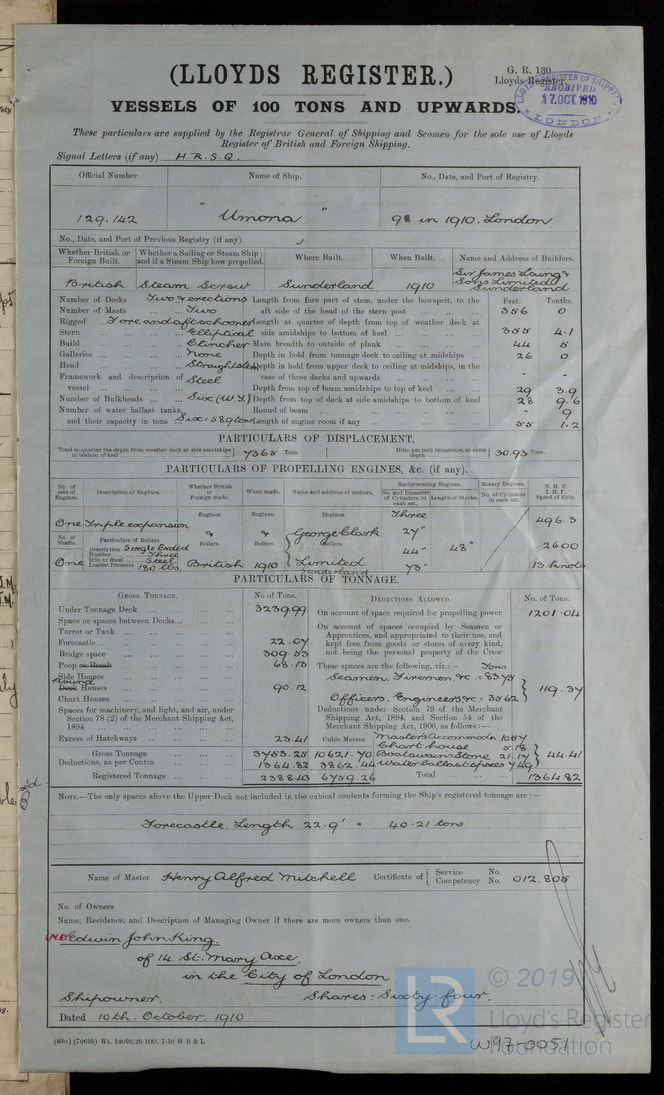 (LLOYDS REGISTER.)
G. R. 130
Lloyds Register.
LLOYDS REGISTER OF SHIPPING
RECEIVED
17.OCT.1910
LONDON
VESSELS OF 100 TONS AND UPWARDS.
These particulars are supplied by the Registrar General of Shipping and Seamen for the sole use of Lloyds
Register of British and Foreign Shipping.
Signal Letters (if any) H.R.S.Q.
Official Number. Name of Ship. No., Date, and Port of Registry.
129.142 "Umona" 98 in 1910. London
No., Date, and Port of Previous Registry (if any)
Whether British or Foreign Built. Whether a Sailing or Steam Ship; and if a Steam Ship how propelled. Where Built. When Built. Name and Address of Builders.
British Steam Screw Sunderland 1910 Sir James Laing & Sons Limited Sunderland
Number of Decks Two & erections Length from fore part of stem, under the bowsprit, to the Feet. Tenths.
Number of Masts Two aft side of the head of the stern post 356 0
Rigged Fore and aft schooner Length at quarter of depth from top of weather deck at
Stern Elliptical side amidships to bottom of keel 355 4.1
Build Clincher Main breadth to outside of plank 44 5
Galleries None Depth in hold from tonnage deck to ceiling at midships 26 0
Head Straight stem Depth in hold from upper deck to ceiling at midships, in the
Framework and description of Steel case of three decks and upwards - -
vessel Depth from top of beam amidships to top of keel 29 3.9
Number of Bulkheads Six (W.T.) Depth from top of deck at side amidships to bottom of keel 28 9.6
Number of water ballast tanks, Round of beam - 9
and their capacity in tons Six = 589 tons Length of engine room if any 55 1.2
PARTICULARS OF DISPLACEMENT.
Total to quarter the depth from weather deck at side amidships to bottom of keel 7365 Tons. Ditto per inch immersion at same depth 30.93 Tons.
PARTICULARS OF PROPELLING ENGINES, &c. (if any).
No. of sets of Engines. Description of Engines. Whether British or Foreign made. When made. Name and address of makers. Reciprocating Engines. Rotary Engines. N.H.P. I.H.P. Speed of Ship.
No. and Diameter of Cylinders in each set. Length of Stroke. No. of Cylinders in each set.
Engines. Engines. Engines. Three
One Triple expansion 27" 496.3
No. of Shafts. Particulars of Boilers. & & George Clark
Description Single Ended Boilers. Boilers. Boilers. 44" 48" 2600
Number Three
Iron or Steel Steel
One Loaded Pressure 180 lbs. British 1910 Limited Sunderland 73" 13 knots
PARTICULARS OF TONNAGE.
GROSS TONNAGE. No. of Tons. DEDUCTIONS ALLOWED. No. of Tons.
Under Tonnage Deck 3239.99 On account of space required for propelling power 1201.04
Space or spaces between Decks On account of spaces occupied by Seamen or
Turret or Tank Apprentices, and appropriated to their use, and
Forecastle 22.07 kept free from goods or stores of every kind,
Bridge space 309.53 not being the personal property of the Crew
Poop or Break 68.13 These spaces are the following, viz.:— Tons
Side Houses Seamen, Firemen, &c. = 83.75
Deck Houses Round 90.12 119.37
Chart Houses Officers, Engineers &c = 35.62
Spaces for machinery, and light, and air, under Deductions under Section 79 of the Merchant
Section 78 (2) of the Merchant Shipping Act, Shipping Act, 1894, and Section 54 of the
1894 Merchant Shipping Act, 1906, as follows:—
Excess of Hatchways 23.41 Cubic Metres Master's Accommodn. 10.57
Chart house 5.18
Gross Tonnage 3753.25 10621.70 Boatswain's Store 21.17 44.41
Deductions, as per Contra 1364.82 3862.44 Water ballast spaces 7.49
Registered Tonnage 2388.43 6759.26 Total 1364.82
NOTE.—The only spaces above the Upper Deck not included in the cubical contents forming the Ship's registered tonnage are:—
Forecastle. Length 22.9' = 40.21 tons
Name of Master Henry Alfred Mitchell Certificate of { Service No. Competency No. 012.805
No. of Owners
Name, Residence, and Description of Managing Owner if there are more owners than one.
Edwin John King.
of 14 St. Mary Axe.
in the City of London
Shipowner. Shares: Sixty four.
Dated 10th. October. 1910
(83a) (70655) Wt. 14095/26 1000 7-10 W B & L
LR
© 2019
Lloyd's Register
Foundation
W97-0051